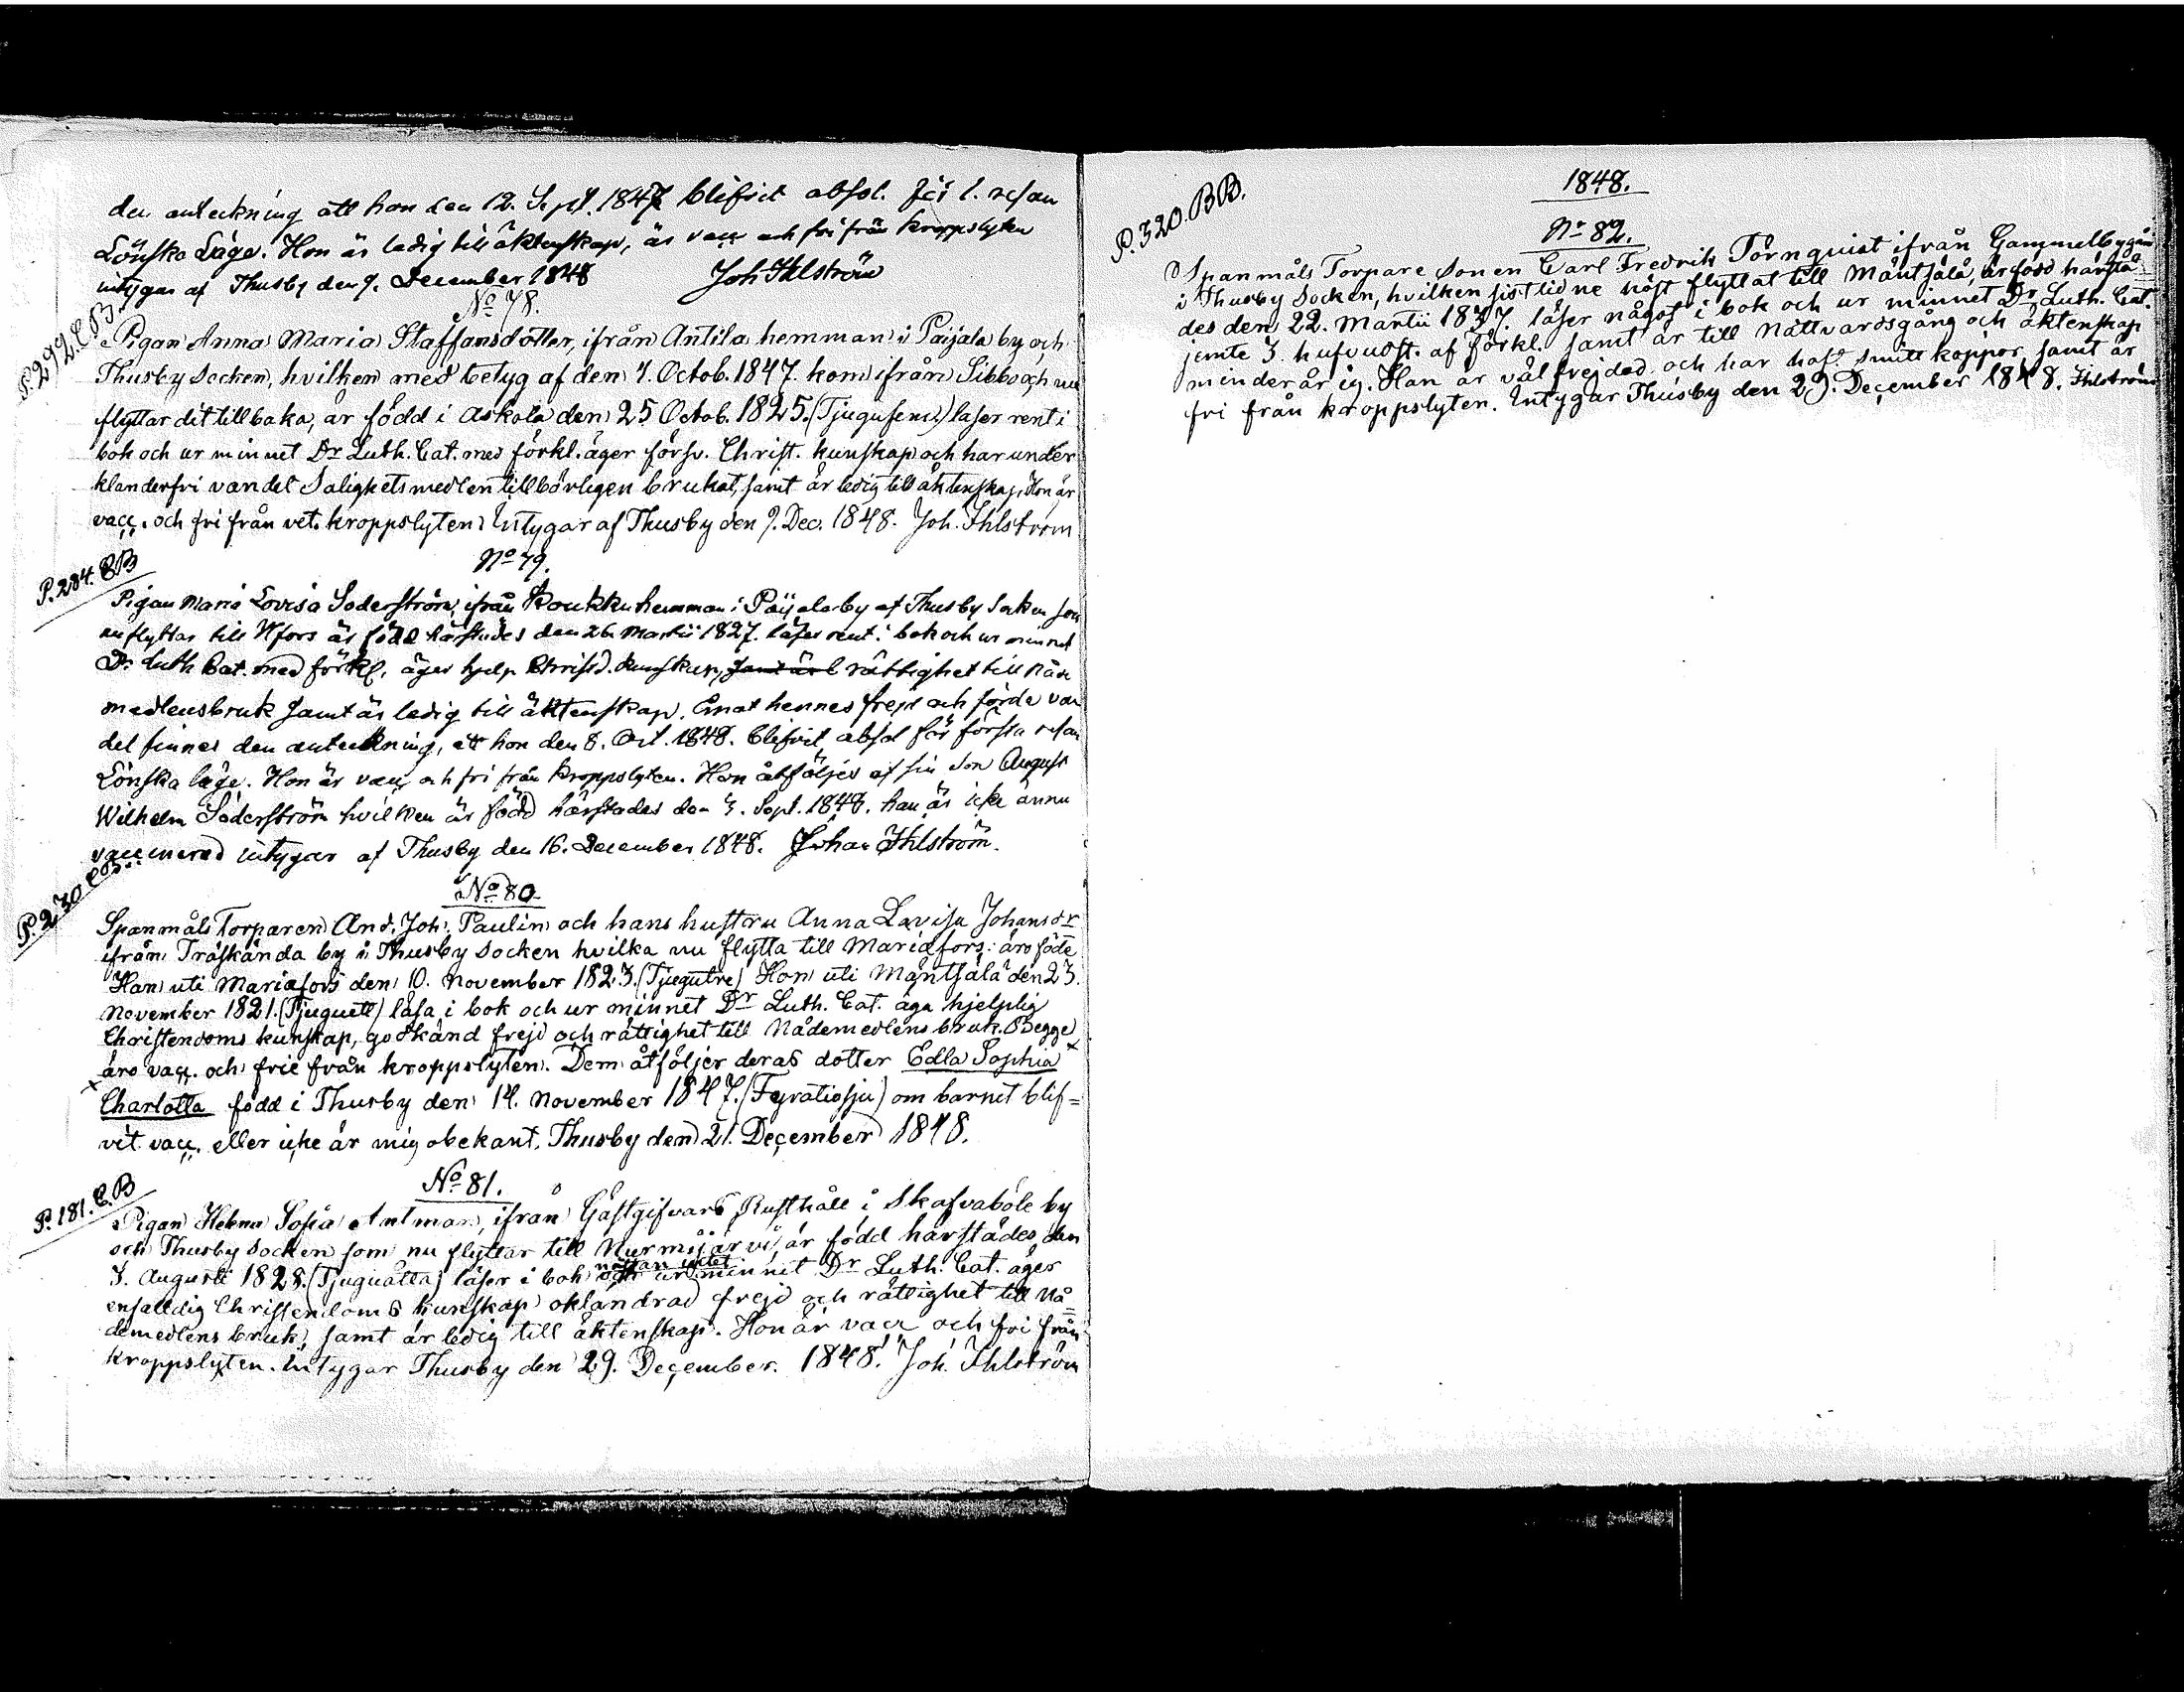 den anteckning att hon den 12. Sept. 1847 blifvit absol. för 1. resan
Lönska Läge. Hon är ledig till äktenskap, är vacc och fri från kroppslyten
intygar af Thusby den 9. December 1848 Joh Ihlström
P. 292. C.B.
No 78.
Pigan Anna Maria Staffansdotter, ifrån Antila hemman i Päijala by och
Thusby Socken, hvilken med betyg af den 7. Octob. 1847. kom ifrån Sibbo och nu
flyttar dit tillbaka, är född i Askola den 25 Octob. 1825. (Tjugufem) läser rent i
bok och ur minnet Dr Luth. Cat. med förkl. äger försv. Christ. kunskap och har under
klanderfri vandel Salighetsmedlen tillbörligen brukat, samt är ledig till äktenskap. Hon är
vacc. och fri från vet. kroppslyten. Intygar af Thusby den 9. Dec. 1848. Joh. Ihlström
P. 284. C.B
No 79.
Pigan Maria Lovisa Söderström, ifrån Koukku hemman i Päijala by af Thusby Socken som
nu flyttar till Hfors är född härstädes den 26 Martii 1827. läser rent i bok och ur minnet
Dr Luth Cat. med förkl. äger hjelp. Christd. kunskap, samt är rättighet till Nåde
medlens bruk samt är ledig till äktenskap. Emot hennes frejd och förde van
del finnes den anteckning, att hon den 8. Oct. 1848. blifvit absol för första resan
Lönska läge. Hon är vacc och fri från kroppslyten. Hon åtföljes af sin Son August
Wilhelm Söderström hvilken är född härstades den 3. Sept. 1848. han är icke ännu
vaccinerad intygar af Thusby den 16. December 1848. Johan Ihlström.
P. 230 C.B.
No 80.
Spanmåls Torparen And. Joh. Paulin och hans hustru Anna Lovisa Johansdr
ifrån Träskända by i Thusby Socken hvilka nu flytta till Mariafors: äro född
Han uti Mariafors den 10. November 1823. (Tjugutre) Hon uti Mäntsälä den 23.
November 1821. (Tjuguett) läsa i bok och ur minnet Dr Luth. Cat. äga hjelplig
Christendoms kunskap, godkänd frejd och rättighet till Nådemedlens bruk. Begge
äro vacc. och frie från kroppslyten. Dem åtföljer deras dotter Edla Sophia x
x Charlotta född i Thusby den 14. November 1847. (Fyratiosju) om barnet blif=
vit vacc. eller icke är mig obekant. Thusby den 21. December 1848.
P. 181. C.B
No 81.
Pigan Helena Sofia Antman, ifrån Gästgifvars Rusthåll i Skafvaböle by
och Thusby Socken som nu flyttar till Nurmijärvi, är född härstädes den
3. Augusti 1828. (Tjuguåtta) läser i bok nästan intet ur minnet Dr Luth. Cat. äger
enfalldig Christendoms kunskap oklandrad frejd och rättighet till Nå=
demedlens bruk, samt är ledig till äktenskap. Hon är vacc och fri från
kroppslyten. Intygar Thusby den 29. December. 1848. Joh. Ihlström
1848.
P. 320. BB.
No 82.
Spanmåls Torpare Sonen Carl Fredrik Törnquist ifrån Gammelbygård
i Thusby Socken, hvilken sistlidne höst flyttat till Mäntsälä, är född härstä
des den 22. Martii 1837. läser något i bok och ur minnet Dr Luth. Cat.
jemte 3. hufvudst. af förkl. samt är till Nattvardsgång och äktenskap
minderårig. Han är väl frejdad och har haft smitt koppor, samt är
fri från kroppslyten. Intygar Thusby den 29. December 1848. Ihlström